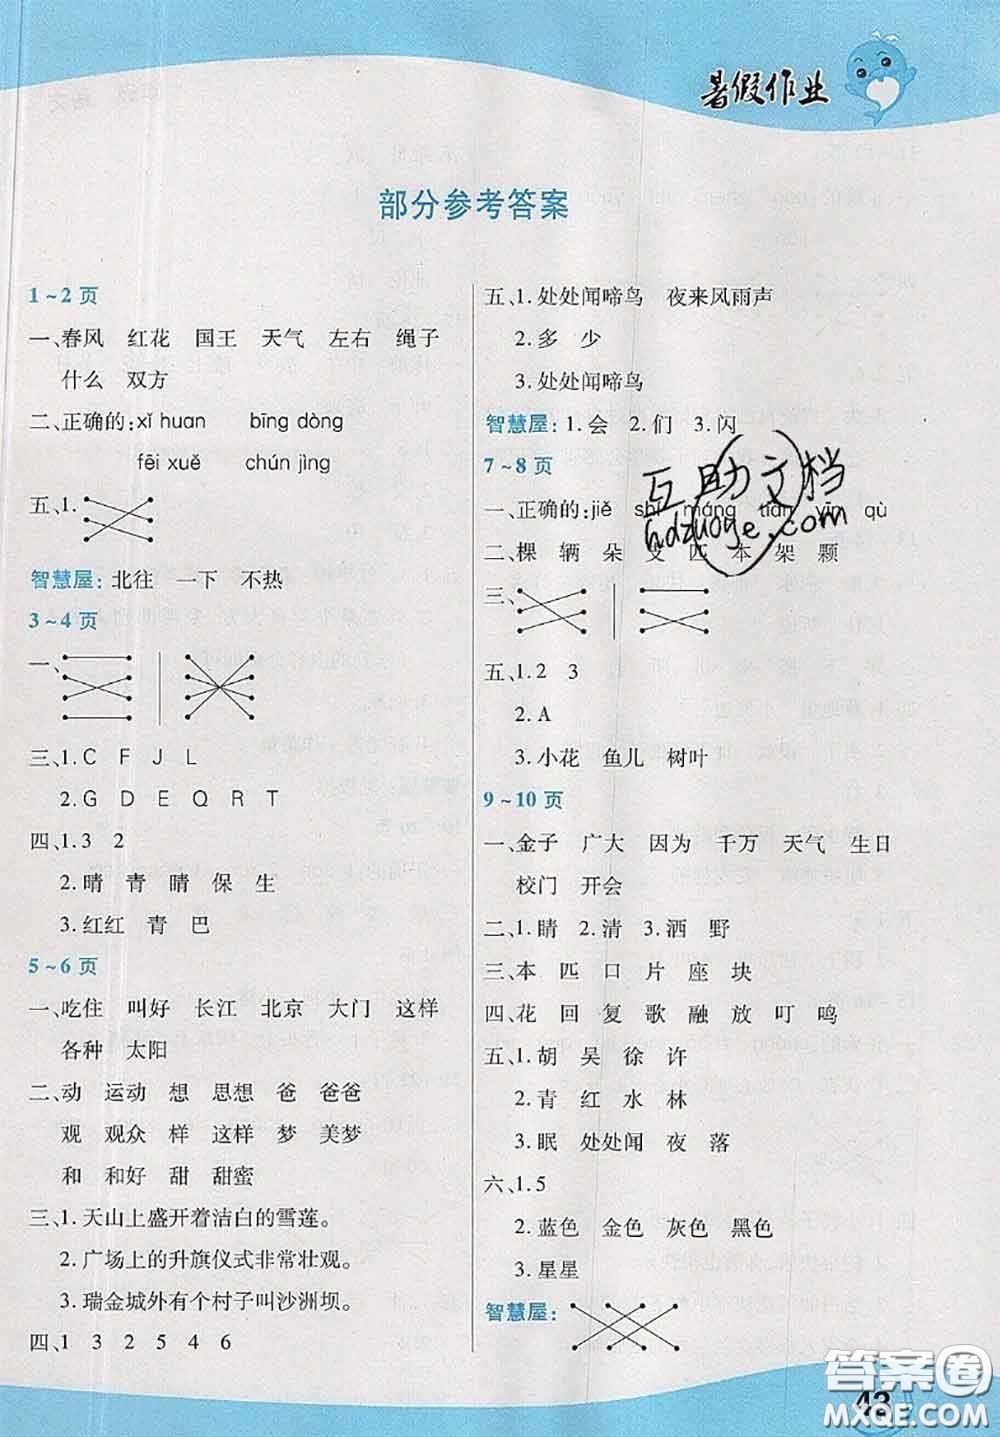 暑假作业
部分参考答案
1~2页
一、春风 红花 国王 天气 左右 绳子
什么 双方
二、正确的:xǐ huan bīng dòng
fēi xuě chún jìng
五、1.
智慧屋:北往 一下 不热
3~4页
一、
三、1. C F J L
2. G D E Q R T
四、1. 3 2
2. 晴 青 睛 保 生
3. 红红 青 巴
5~6页
一、吃住 叫好 长江 北京 大门 这样
各种 太阳
二、动 运动 想 思想 爸 爸爸
观 观众 样 这样 梦 美梦
和 和好 甜 甜蜜
三、1. 天山上盛开着洁白的雪莲。
2. 广场上的升旗仪式非常壮观。
3. 瑞金城外有个村子叫沙洲坝。
四、1 3 2 5 4 6
五、1. 处处闻啼鸟 夜来风雨声
2. 多 少
3. 处处闻啼鸟
智慧屋:1. 会 2. 们 3. 闪
7~8页
一、正确的:jiě shí máng tián yīn qù
二、棵 辆 朵 支 匹 本 架 颗
三、
五、1. 2 3
2. A
3. 小花 鱼儿 树叶
9~10页
一、金子 广大 因为 千万 天气 生日
校门 开会
二、1. 睛 2. 清 3. 洒 野
三、本 匹 口 片 座 块
四、花 回 复 歌 融 放 叮 鸣
五、1. 胡 吴 徐 许
2. 青 红 水 林
3. 眠 处处闻 夜 落
六、1. 5
2. 蓝色 金色 灰色 黑色
3. 星星
智慧屋:
43
互助文档
hdzuoye.com
答案圈
MXQE.COM